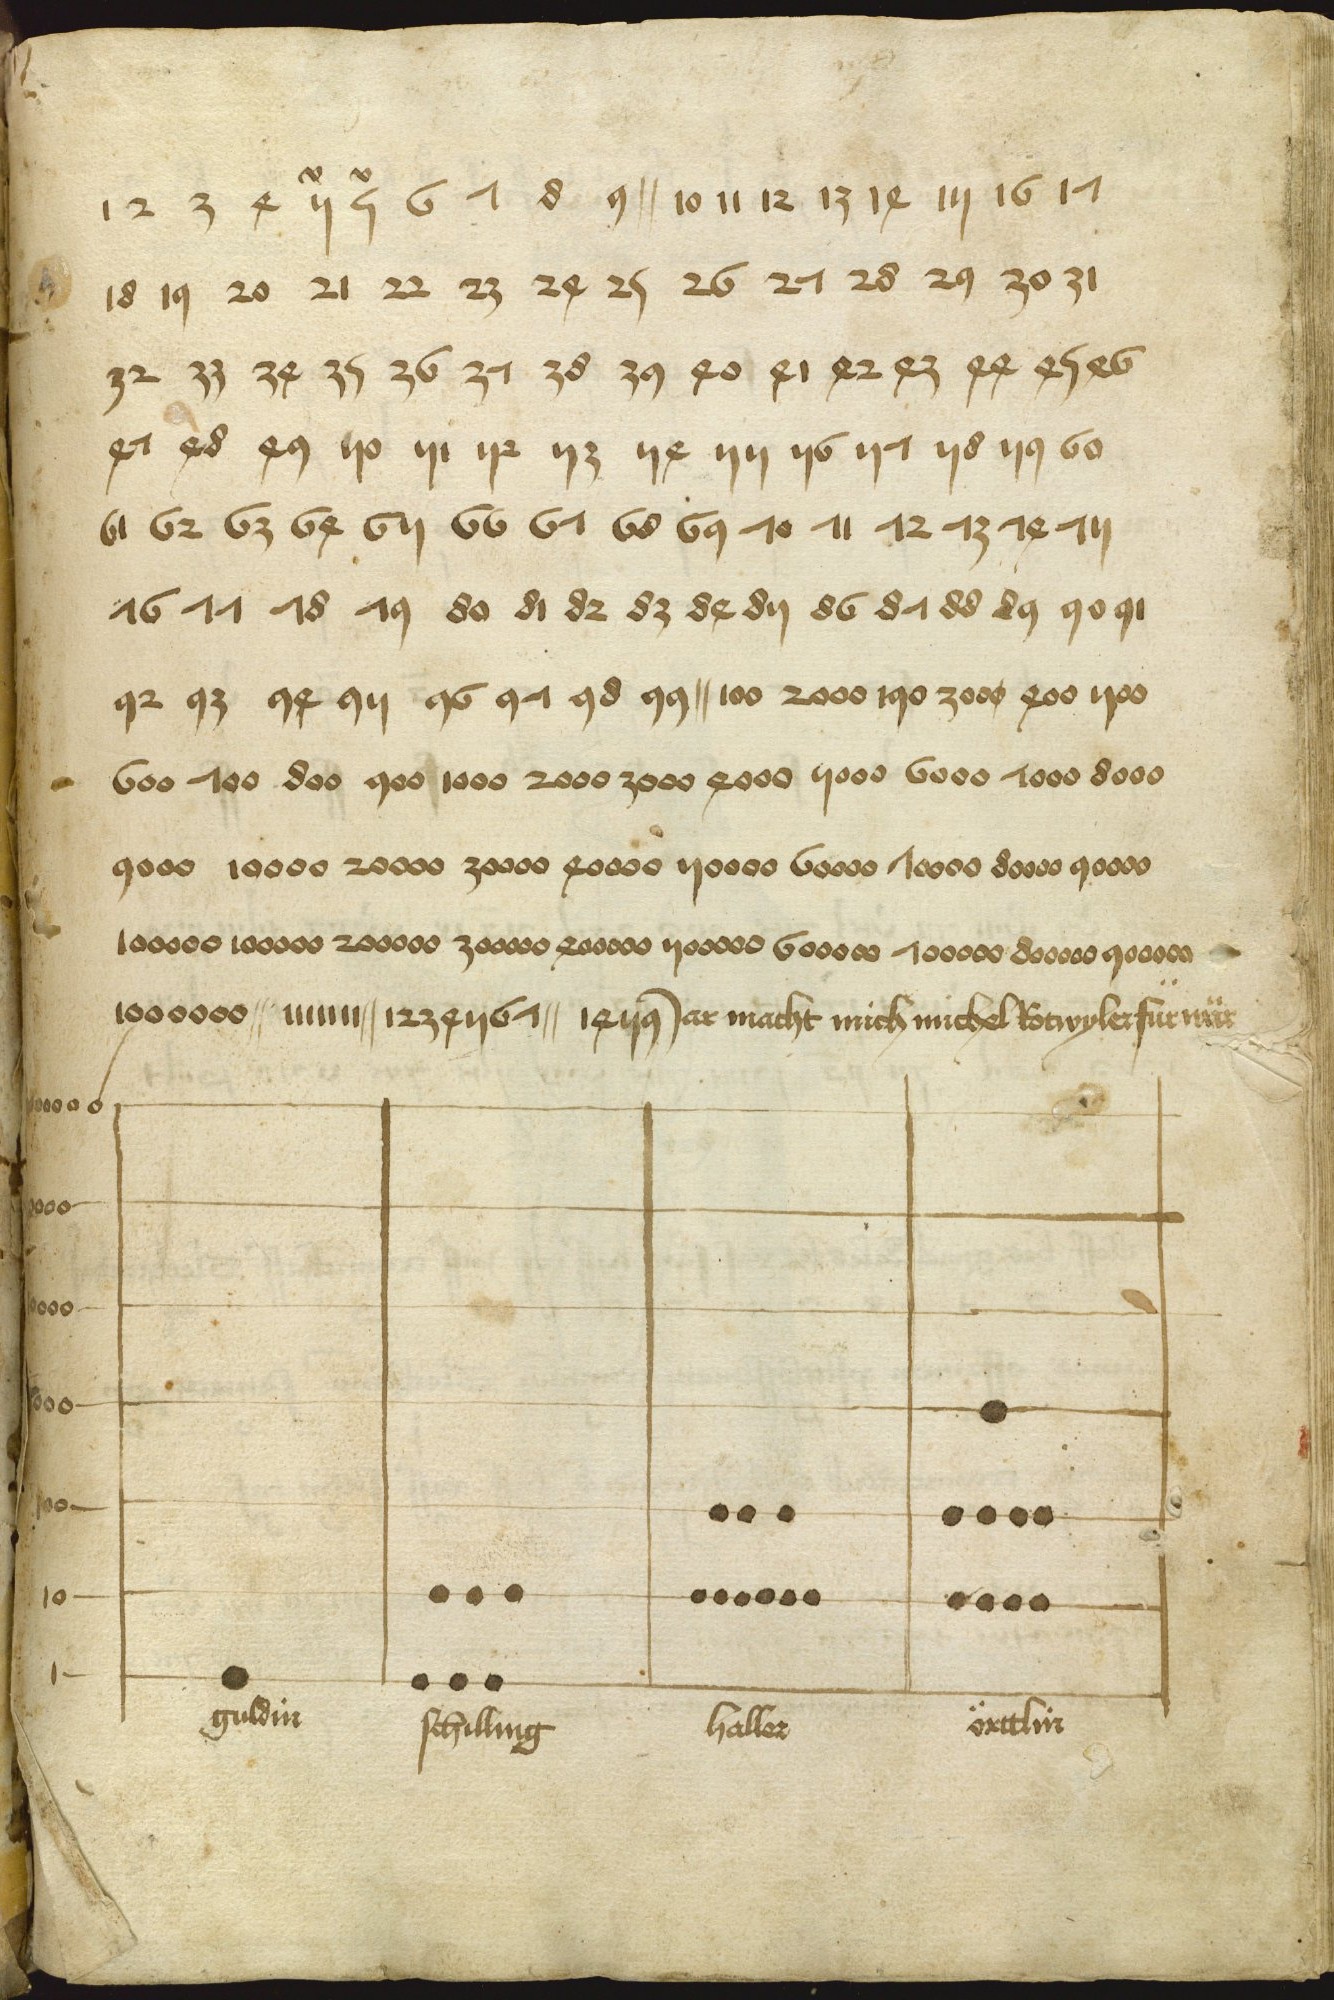 1 2 3 4 5 5 6 7 8 9 // 10 11 12 13 14 15 16 17
18 19 20 21 22 23 24 25 26 27 28 29 30 31
32 33 34 35 36 37 38 39 40 41 42 43 44 45 46
47 48 49 50 51 52 53 54 55 56 57 58 59 60
61 62 63 64 65 66 67 68 69 70 71 72 73 74 75
76 77 78 79 80 81 82 83 84 85 86 87 88 89 90 91
92 93 94 95 96 97 98 99 // 100 2000 190 3000 400 500
600 700 800 900 1000 2000 3000 4000 5000 6000 7000 8000
9000 10000 20000 30000 40000 50000 60000 70000 80000 90000
100000 100000 200000 300000 400000 500000 600000 700000 800000 900000
1000000 // 1111111 // 1234567 // 1459 jar macht mich michel Rotwyler für war
100
10
1
guldin schilling haller örttlin